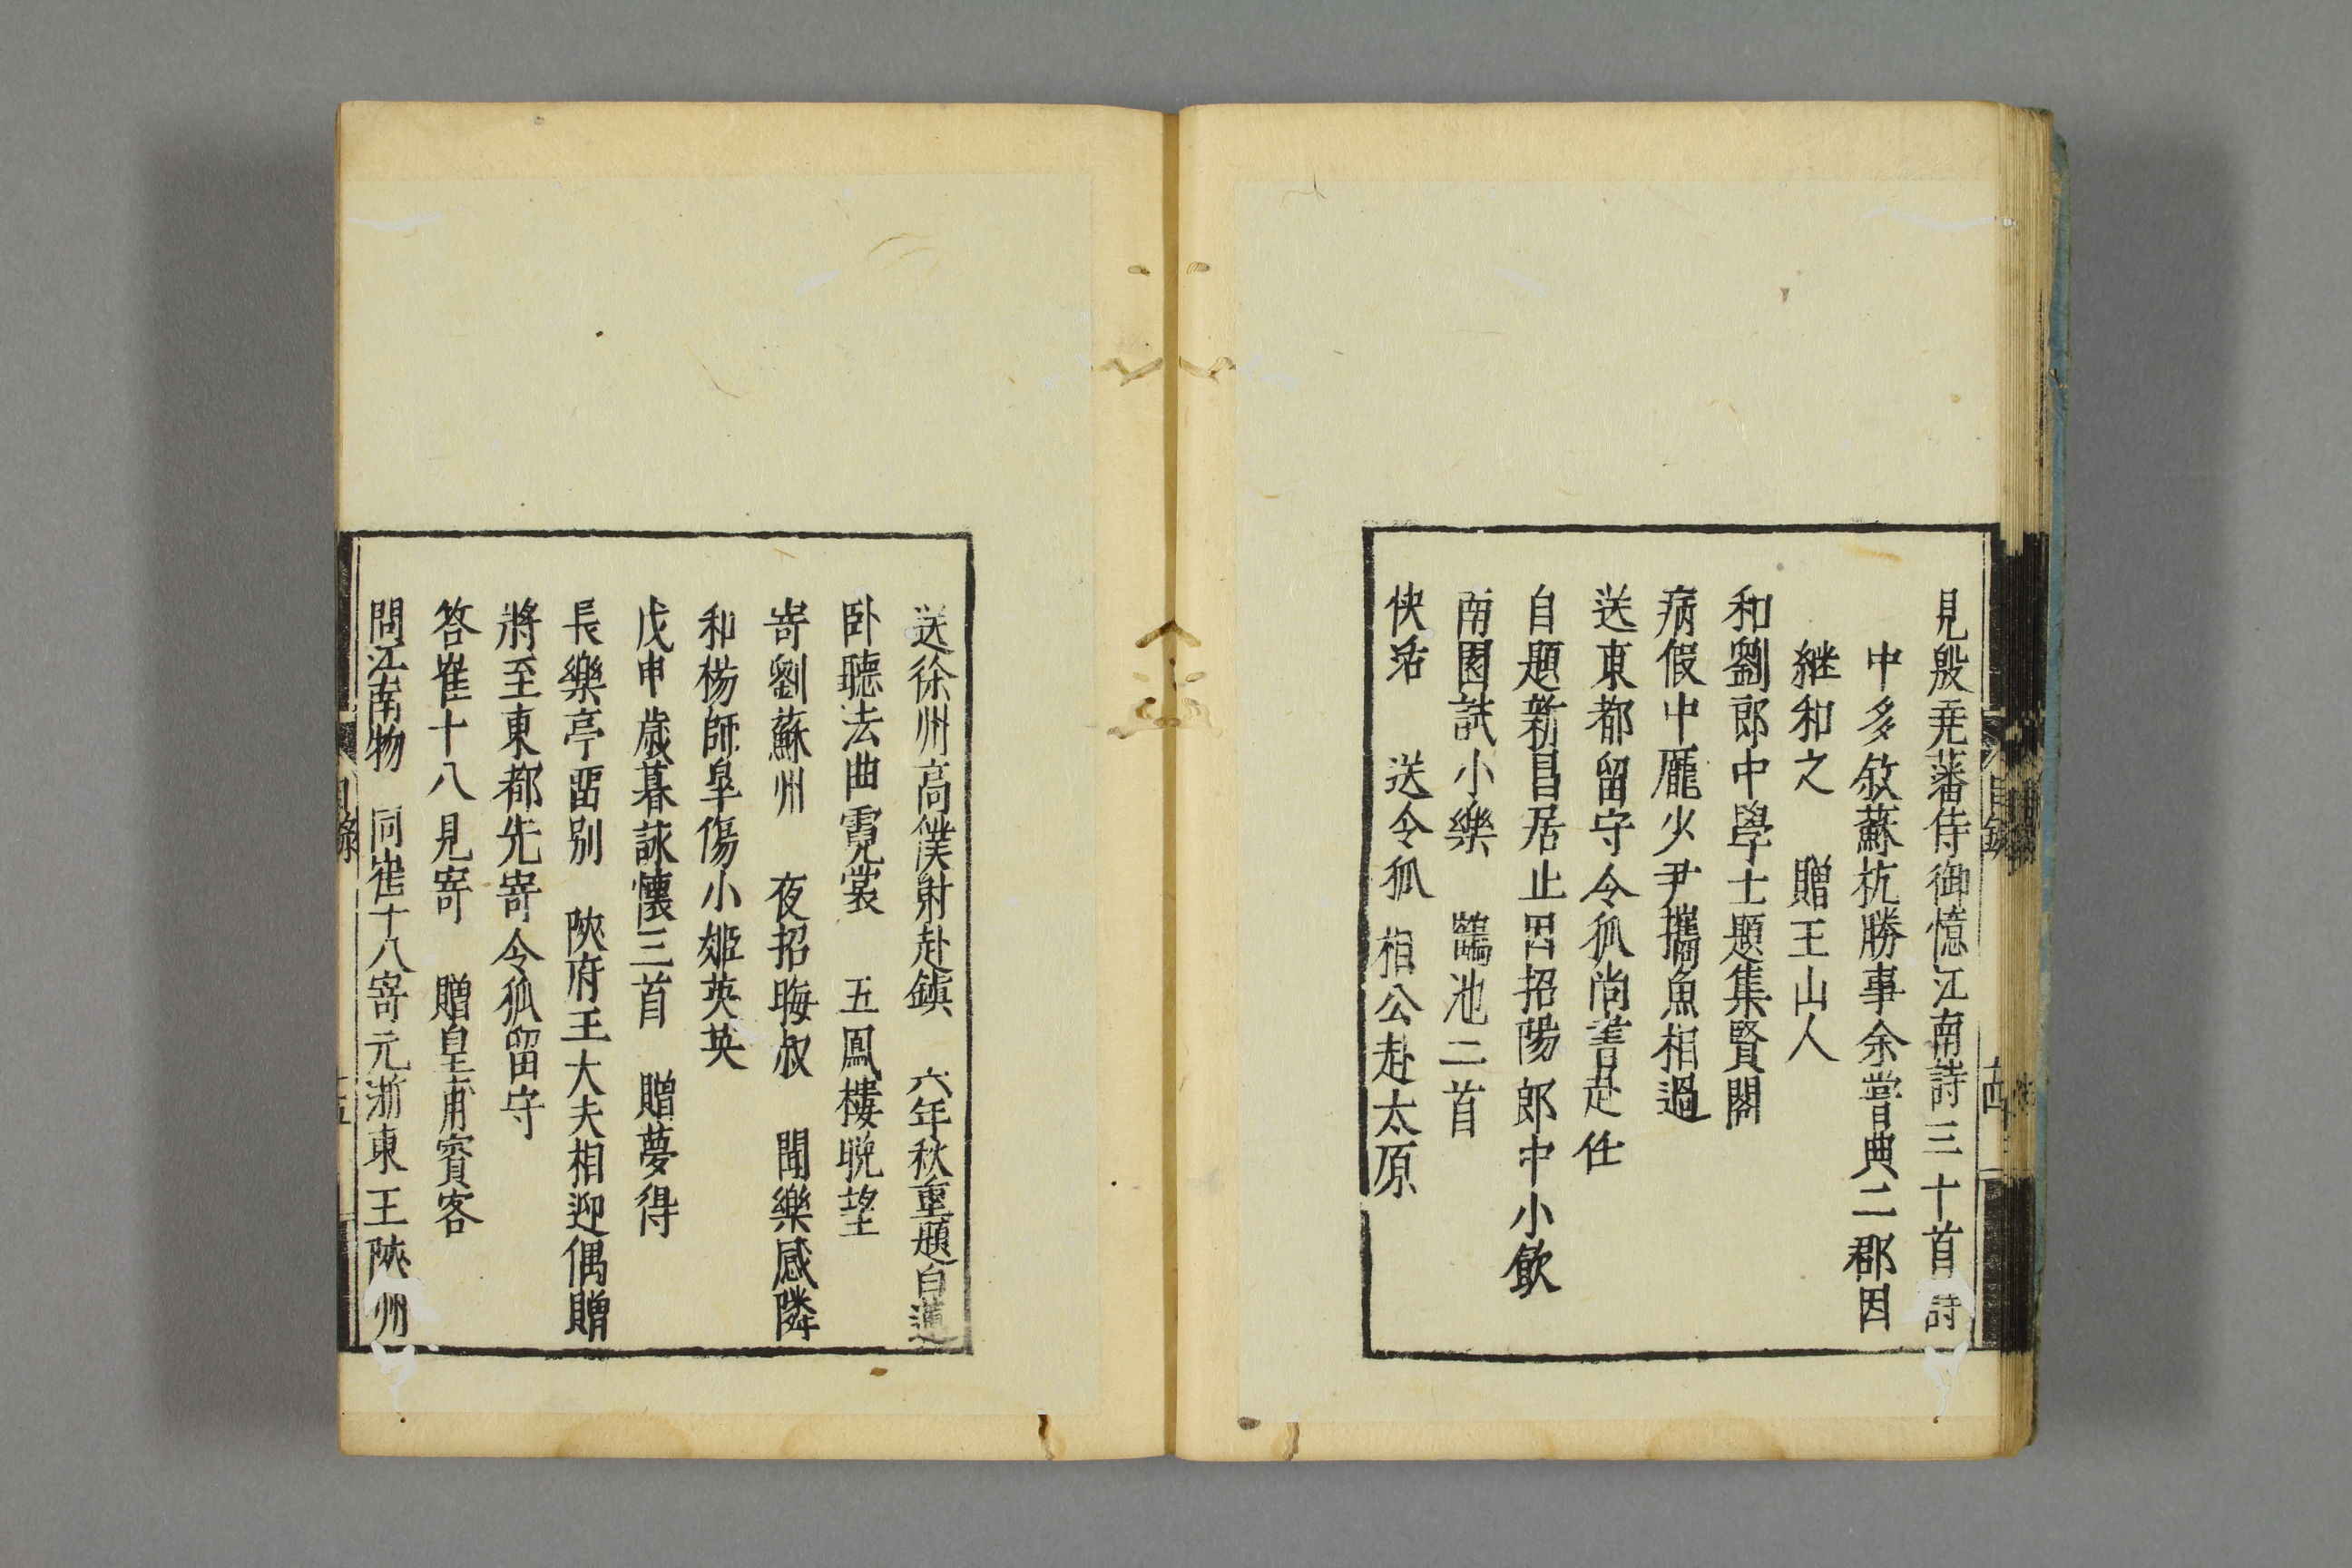 見殷堯藩侍御憶江南詩三十首詩
中多敘蘇杭勝事余嘗典二郡因
継和之　贈王山人
和劉郎中學士題集賢閣
病假中龐少尹攜魚相過
送東都留守令狐尚書赴任
自題新昌居止因招陽郎中小飲
南園試小樂　齶池二首
快活　送令狐相公赴太原
送徐州高僕射赴鎮　六年秋重題白蓮
卧聽法曲霓裳　五鳳樓晩望
寄劉蘇州　夜招晦叔　聞樂感隣
和楊師皐傷小姬英英
戊申歲暮詠懷三首　贈夢得
長樂亭畱别　陝府王大夫相迎偶贈
將至東都先寄令狐留守
答崔十八見寄　贈皇甫賓客
問江南物　同崔十八寄元浙東王陝州
目錄